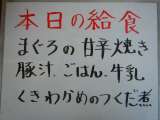 本日の給食
まぐろの甘辛焼き
豚汁、ごはん、牛乳
くきわかめのつくだ煮